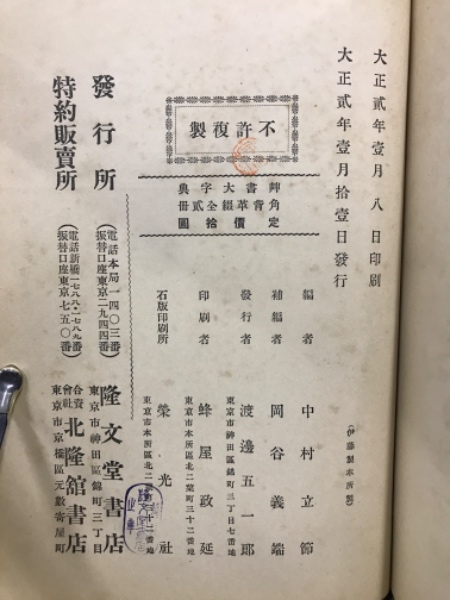 大正貳年壹月八日印刷
大正貳年壹月拾壹日發行
不許復製
艸書大字典
角背革綴全貳冊
定價拾圓
編者 中村立節
補編者 岡谷義端
發行者 渡邊五一郎
東京市神田區錦町三丁目七番地
印刷者 蜂屋政延
東京市本所區北二葉町三十二番地
石版印刷所 榮光社
東京市本所區北二葉町三十二番地
發行所
電話本局一四〇三番
振替口座東京二九四四番
東京市神田區錦町三丁目
隆文堂書店
特約販賣所
電話新橋一七八八・一七八九番
振替口座東京七五〇番
東京市京橋區元數寄屋町
合資會社 北隆館書店